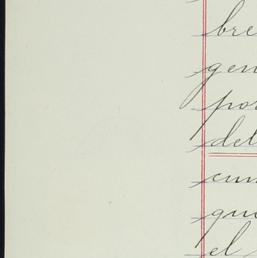 bre
gen
por
del
cum
que
el